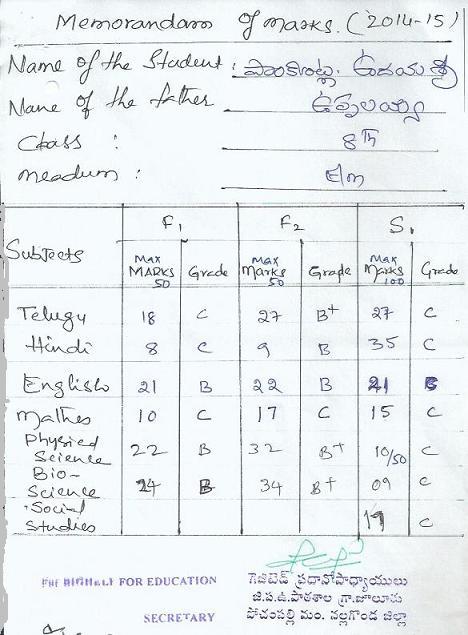 Memorandam of marks. (2014-15)
Name of the Student : పొలకొండ్ల. ఉదయ శ్రీ
Nane of the father ఉప్పలయ్య
Class : 8Th
meadum : E/m
F1 F2 S1
Subjects Max MARKS 50 Grade Max Marks 50 Grade Max Marks 100 Grade
Telugu 18 C 27 B+ 27 C
Hindi 8 C 9 B 35 C
English 21 B 22 B 21 B
mathes 10 C 17 C 15 C
Physical Science 22 B 32 B+ 10/50 C
Bio-Science 24 B 34 B+ 09 C
Social Studies 19 C
FOR EDUCATION
SECRETARY
గెజిటెడ్ ప్రధానోపాధ్యాయులు
జి.ప.ఉ.పాఠశాల గ్రా.జూలూరు
పోచంపల్లి మం. నల్లగొండ జిల్లా